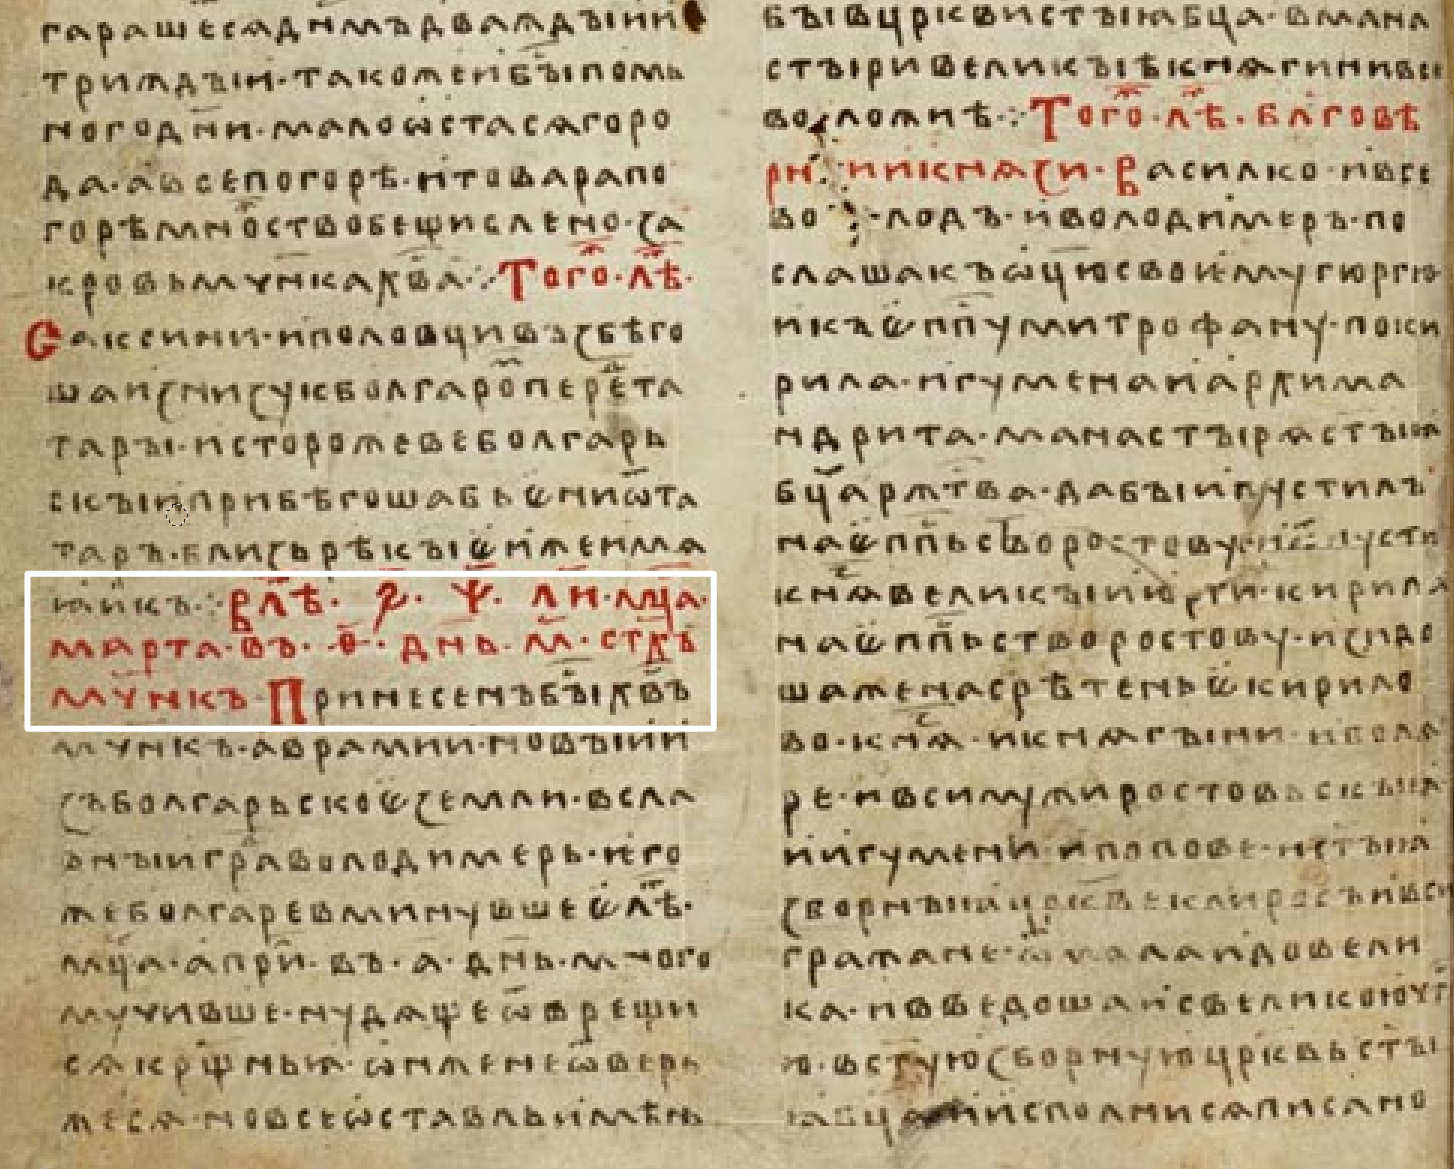 гарашесѧ днмъ два ждꙑ ни
трижⷣꙑ и · такоже и бꙑ по мь
ного дн҃и · мало ѡстасѧ горо
да · а все погорѣ · и товара по
горѣ мноⷤство бещислено · за
кровь мчн҃ка хв҃а ⁘ Тогоⷤ · лѣⷮ ·
Саксини · и половци възбѣго
ша изнизу к болгароⷨ переⷣ та
тарꙑ · и сторожеве болгарь
скꙑи прибѣгоша бьѥни ѿ та
таръ · близь рѣкꙑ ѥиже имѧ
ꙗикъ ⁘ В лѣⷮ · ҂ѕ҃ · ѱ҃ · л҃и · мⷭ҇ца ·
марта · въ · ѳ҃ · дн҃ь · м҃ · ст҃хъ
мч҃нкъ · Принесенъ бꙑⷭ хв҃ъ
мч҃нкъ · аврамии · новꙑи и
зъ болгарьскоѥ земли · в сла
вьнꙑи граⷣ володимерь · ѥго
же болгаре в минувшеѥ лѣⷮ ·
мⷭ҇ца · априⷧ · въ · а҃ · дн҃ь · много
мучивше · нудѧще ѿврещи
сѧ крⷭ҇щньꙗ · ѡн же не ѿверь
жесѧ · но все ѡставль имѣнь
бꙑ в цр҃кви ст҃ꙑꙗ бц҃а · в мана
стꙑри великꙑꙗ кнѧгини все
воложи ѣ ⁘ Тогоⷤ · лѣⷮ · блг҃овѣ
рнии кнѧзи · Василко · и все
володъ · и володимеръ · по
слашакъ ѡц҃ю своѥму гюргю
и къ ѥпп҃у митрофану · по ки
рила · игумена и архима
ндрита · манастꙑрѧ ст҃ꙑꙗ
бц҃а ржⷭ҇тва · да бꙑ и пустилъ
на ѥпп҃ьство ростову
кнѧⷥ великꙑи · кирила
на ѥпп҃ьство ростову · и изидо
ша же на срѣтеньѥ кирило
во · кнѧⷥ · и кнѧгꙑни · и болѧ
ре · и вси мужи ростовьскꙑꙗ
и игумени · и попове ·
зборнꙑꙗ цр҃кве клиросъ и вси
гражане · ѿ мала и до вели
ка · и введоша и с великою че
ю · в ст҃ую зборную цр҃квь ст҃ꙑ
ꙗ бц҃а и исполнисѧ писано